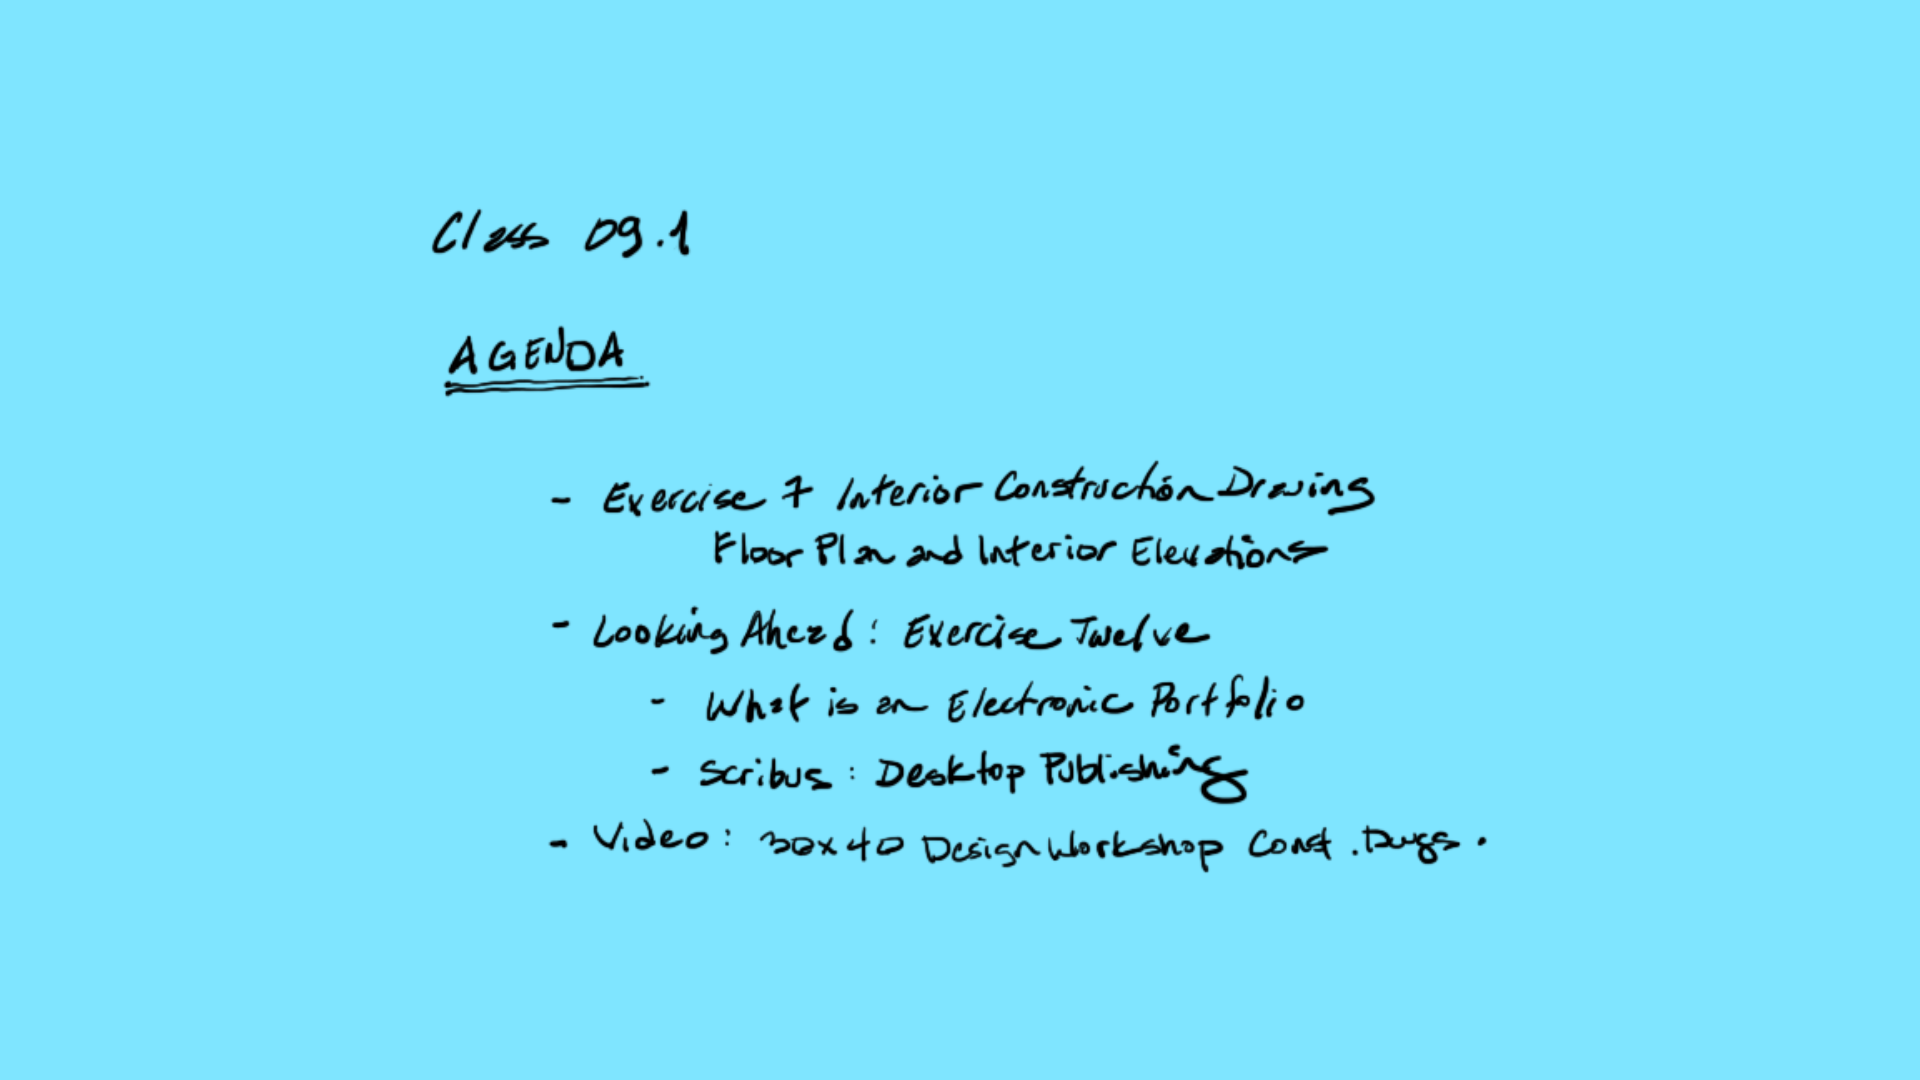 Class 09.1
AGENDA
- Exercise 7 Interior Construction Drawing
Floor Plan and Interior Elevations
- Looking Ahead: Exercise Twelve
- What is an Electronic Portfolio
- Scribus: Desktop Publishing
- Video: 30x40 Design Workshop Const. Dwgs.